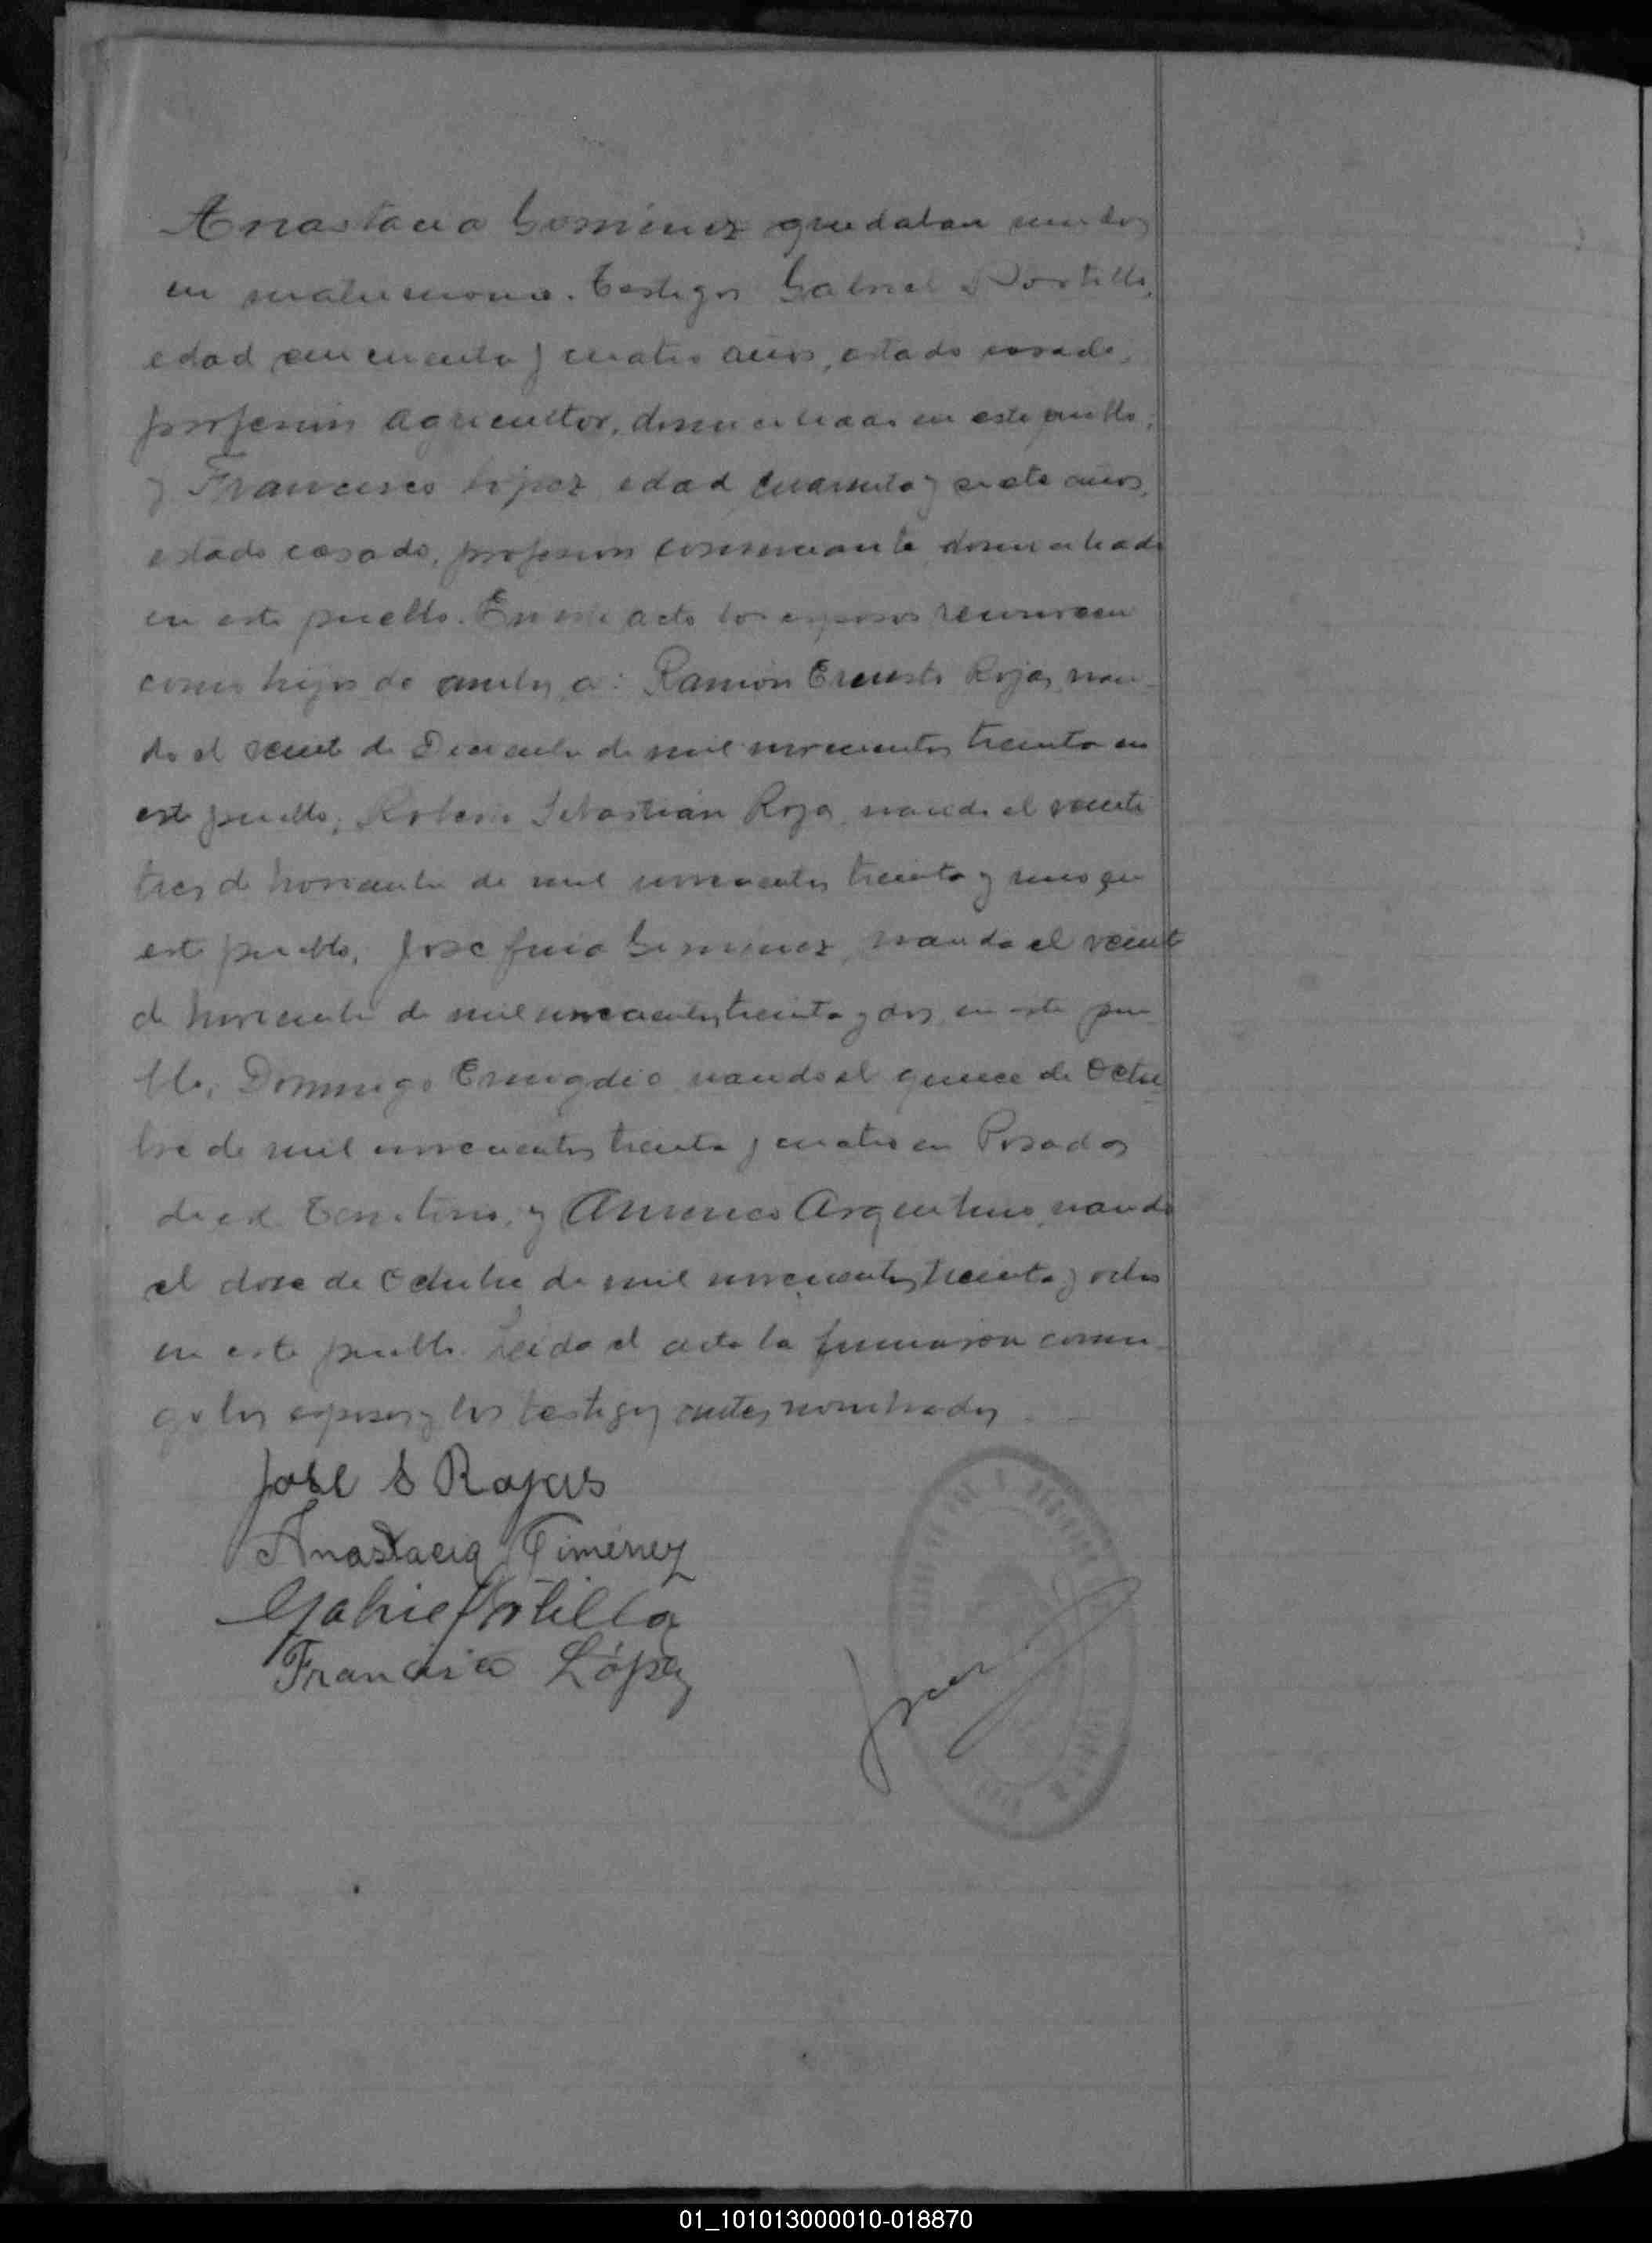 Anastacia Gimenez quedaban unidos
en matrimonio. Testigos Gabriel Portillo,
edad cincuenta y cuatro años, estado casado,
profesión agricultor, domiciliado en este pueblo,
y Francisco López, edad cuarenta y siete años,
estado casado, profesion comerciante, domiciliado
en este pueblo. En este acto los esposos reconocen
como hijos de ambos a: Ramón Ernesto Rojas, naci-
do el veinte de Diciembre de mil novecientos treinta en
este pueblo; Sebastián Rojas, nacido el veinti
tres de Noviembre de mil novecientos treinta y uno en
este pueblo, Josefina Gimenez, nacida el veinte
de Noviembre de mil novecientos treinta y dos, en este pue
blo, Domingo Emigdio nacido el quince de Octu
bre de mil novecientos treinta y cuatro en Posadas
de este Territorio, y Americo Argentino, nacido
el doce de Octubre de mil novecientos treinta y ocho
en este pueblo. Leida el acta la firmaron conmi-
go los esposos y los testigos antes nombrados
José S Rojas
Anastacia Gimenez
Gabriel Portillo
Francisco López
01_101013000010-018870